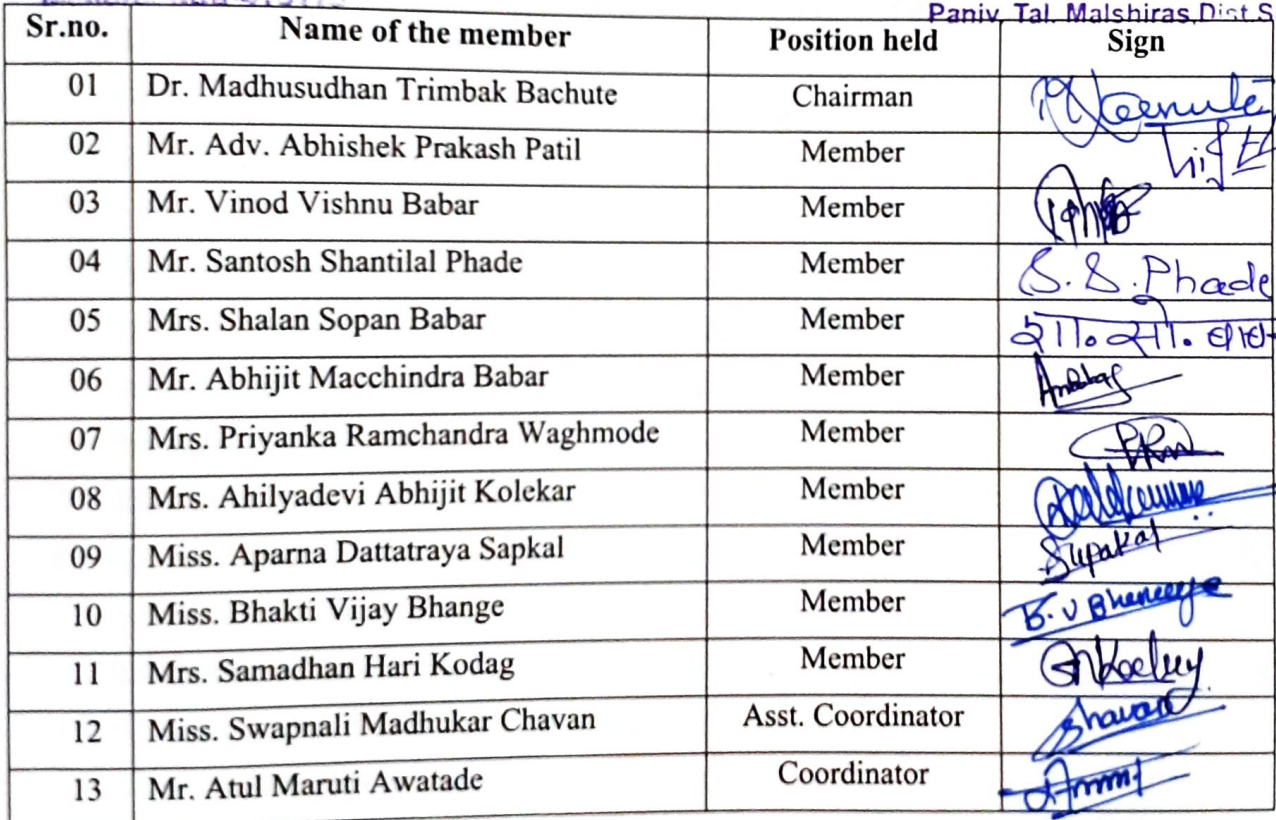 Paniv, Tal. Malshiras, Dist.S
Sr.no. Name of the member Position held Sign
01 Dr. Madhusudhan Trimbak Bachute Chairman
02 Mr. Adv. Abhishek Prakash Patil Member
03 Mr. Vinod Vishnu Babar Member
04 Mr. Santosh Shantilal Phade Member S.S.Phade
05 Mrs. Shalan Sopan Babar Member शा. सो. बाब
06 Mr. Abhijit Macchindra Babar Member
07 Mrs. Priyanka Ramchandra Waghmode Member
08 Mrs. Ahilyadevi Abhijit Kolekar Member
09 Miss. Aparna Dattatraya Sapkal Member Supakal
10 Miss. Bhakti Vijay Bhange Member B.V Bhange
11 Mrs. Samadhan Hari Kodag Member
12 Miss. Swapnali Madhukar Chavan Asst. Coordinator
13 Mr. Atul Maruti Awatade Coordinator